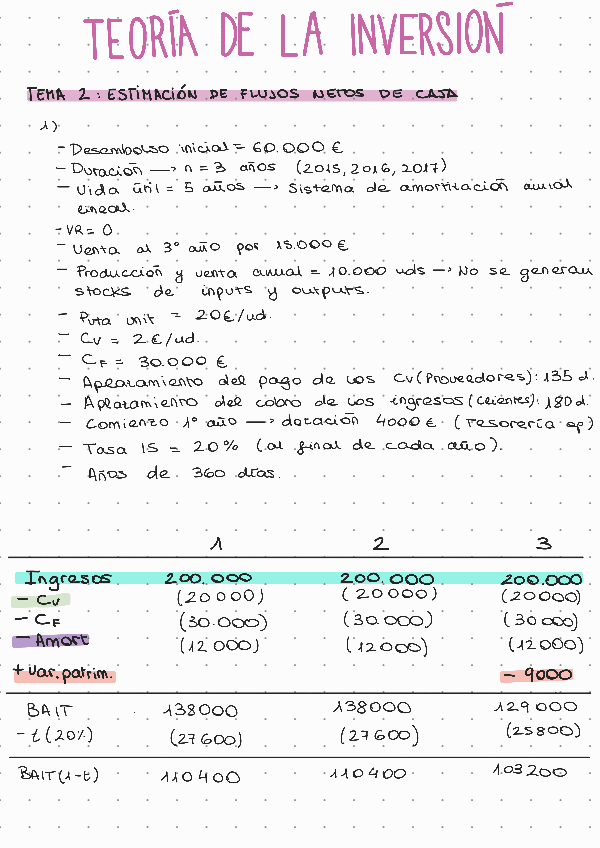 TEORÍA DE LA INVERSIÓN
TEMA 2: ESTIMACIÓN DE FLUJOS NETOS DE CAJA
1)
- Desembolso inicial = 60.000 €
- Duración → n = 3 años (2015, 2016, 2017)
- Vida útil = 5 años → Sistema de amortización anual
lineal.
- VR = 0.
- Venta al 3º año por 15.000 €
- Producción y venta anual = 10.000 uds → No se generan
stocks de inputs y outputs.
- Pvta unit = 20€/ud.
- Cv = 2€/ud.
- CF = 30.000 €
- Aplazamiento del pago de los Cv (Proveedores): 135 d.
- Aplazamiento del cobro de los ingresos (clientes): 180 d.
- Comienzo 1º año → dotación 4000€ (Tesorería op)
- Tasa IS = 20% (al final de cada año).
- Años de 360 días.
1 2 3
Ingresos 200.000 200.000 200.000
- Cv (20000) (20000) (20000)
- CF (30.000) (30.000) (30000)
- Amort (12000) (12000) (12000)
+ Var. patrim. - 9000
BAIT 138000 138000 129000
- t (20%) (27600) (27600) (25800)
BAIT(1-t) 110400 110400 103200